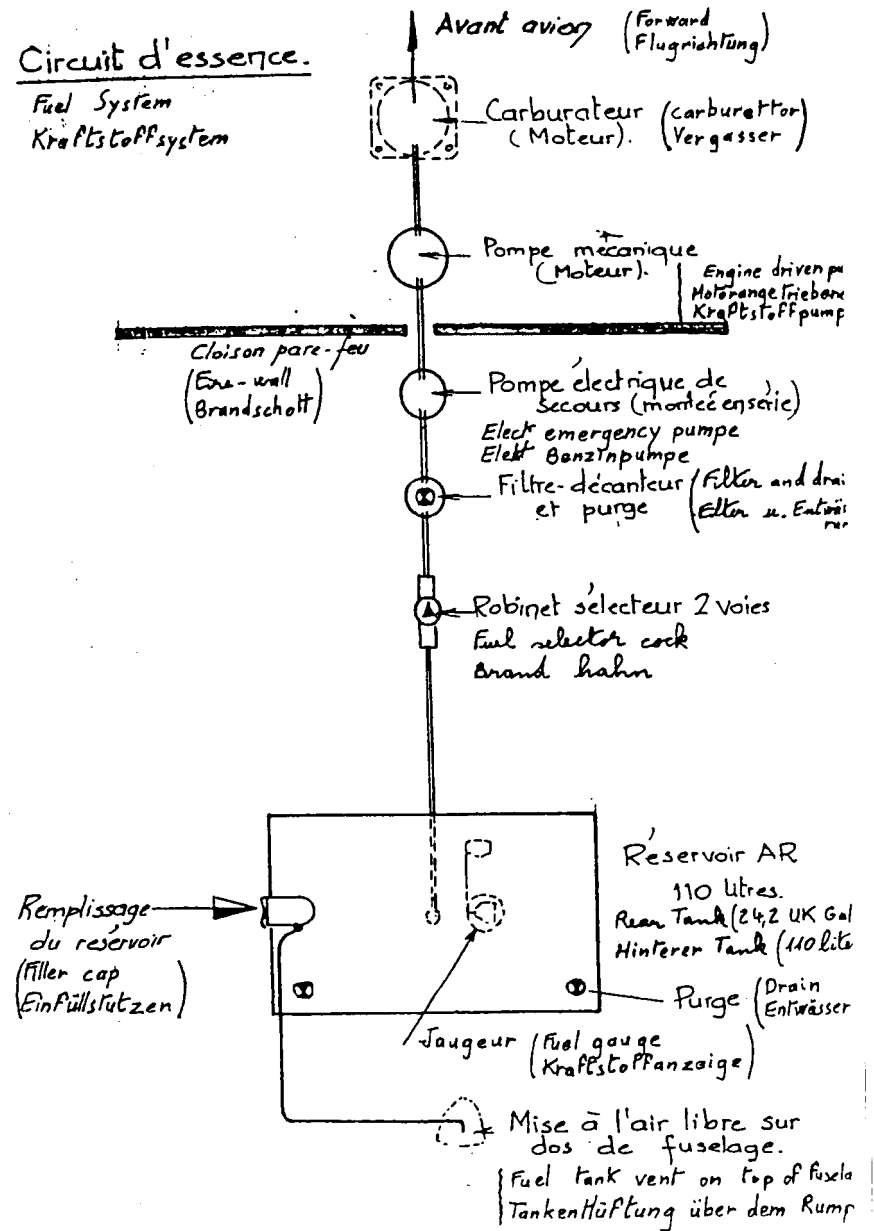 Circuit d'essence.
Fuel System
Kraftstoffsystem
Avant avion (Forward
Flugrichtung)
Carburateur (carburettor
(Moteur). Vergasser)
Pompe mécanique
(Moteur).
Engine driven pu
Motorangetriebene
Kraftstoffpump
Cloison pare-feu
(Fire-wall
Brandschott)
Pompe électrique de
secours (montée en série)
Elect emergency pumpe
Elekt Benzinpumpe
Filtre-décanteur (Filter and drai
et purge Filter u. Entwäs
run
Robinet sélecteur 2 voies
Fuel selector cock
Brand hahn
Réservoir AR
110 litres.
Rear Tank (24,2 UK Gal
Hinterer Tank (110 lite
Remplissage
du reśervoir
(Filler cap
Einfüllstutzen)
Purge (Drain
Entwässer
Jaugeur (Fuel gauge
Kraftstoffanzaige)
Mise à l'air libre sur
dos de fuselage.
Fuel tank vent on top of fusela
Tankentlüftung über dem Rump